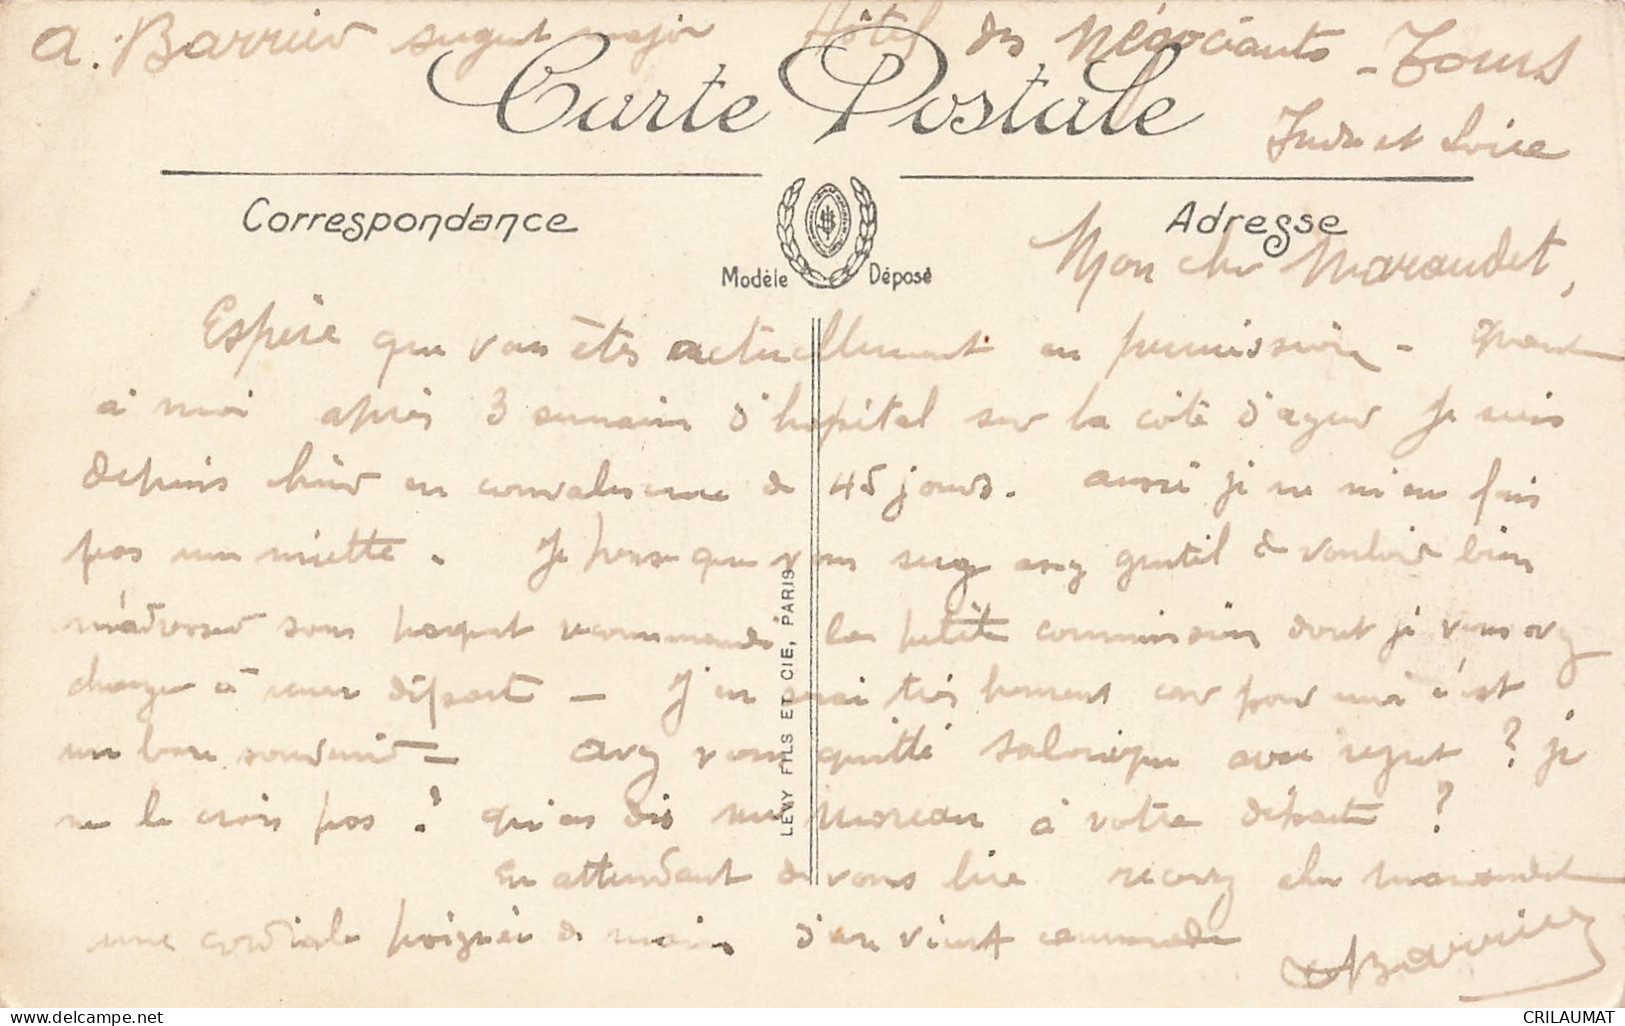 A. Barrier sergent major Hôtel des Négociants - Tours
Indre et Loire
Carte Postale
Correspondance
Adresse
Modèle Déposé
Mon cher Maraudet,
Espère que vous êtes actuellement en permission - Quand
à moi après 3 semaines d'hopital sur la côte d'azur Je suis
depuis hier en convalescence de 45 jours. Aussi je ne m'en fais
pas une miette. Je pense que vous serez assez gentil de vouloir bien
m'adresser sous paquet recommandé la petite commission dont je vous avez
chargé à mon départ - J'en serai très heureux car pour moi c'est
un bon souvenir - Avez vous quitté Salonique avec regret ? je
ne le crois pas ! qu'en dis Moreau à votre départ ?
En attendant de vous lire recevez cher Maraudet
une cordiale poignée de mains d'un vieux camarade
ABarrier
LEVY FILS ET CIE, PARIS
delcampe.net
CRILAUMAT